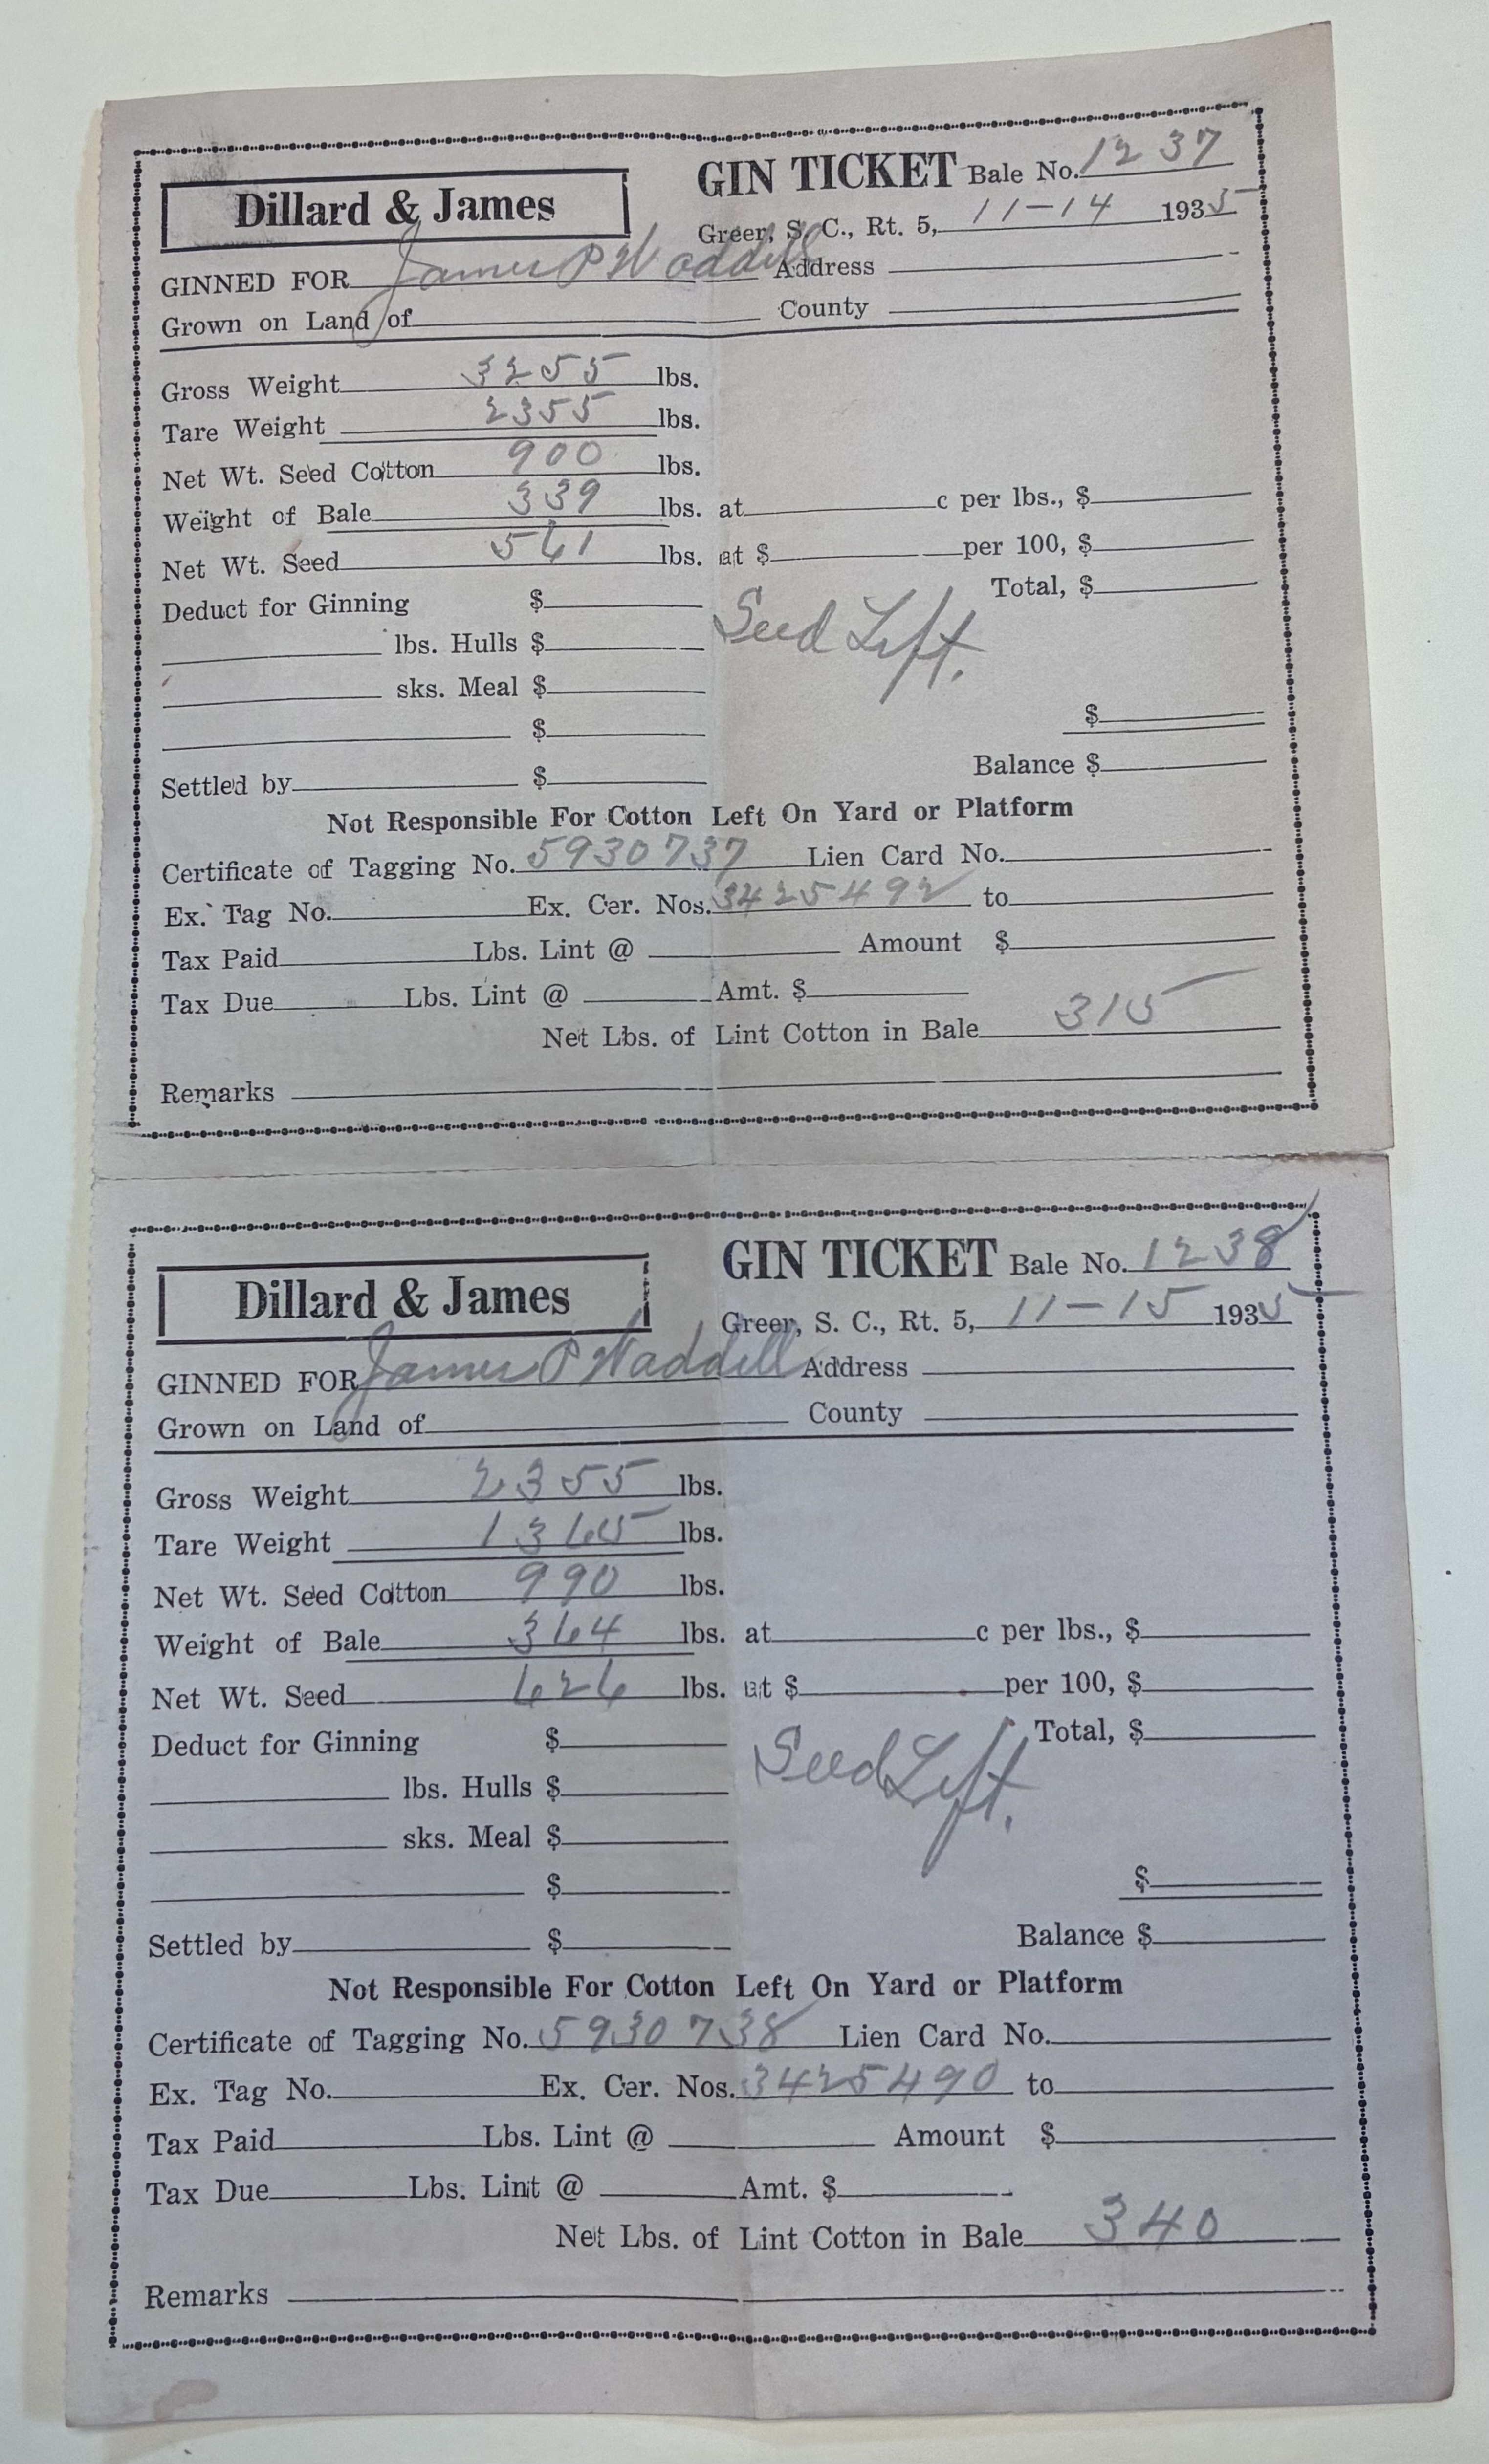 GIN TICKET Bale No. 1237
Dillard & James
Greer, S. C., Rt. 5, 11-14 1935
GINNED FOR James P Waddill Address
Grown on Land of County
Gross Weight 3255 lbs.
Tare Weight 2355 lbs.
Net Wt. Seed Cotton 900 lbs.
Weight of Bale 339 lbs. at c per lbs., $
Net Wt. Seed 561 lbs. at $ per 100, $
Deduct for Ginning $ Total, $
Seed Left.
lbs. Hulls $
sks. Meal $
$ $
Settled by $ Balance $
Not Responsible For Cotton Left On Yard or Platform
Certificate of Tagging No. 5930737 Lien Card No.
Ex. Tag No. Ex. Cer. Nos. 3425492 to
Tax Paid Lbs. Lint @ Amount $
Tax Due Lbs. Lint @ Amt. $
Net Lbs. of Lint Cotton in Bale 315
Remarks
GIN TICKET Bale No. 1238
Dillard & James
Greer, S. C., Rt. 5, 11-15 1935
GINNED FOR James P Waddill Address
Grown on Land of County
Gross Weight 2355 lbs.
Tare Weight 1365 lbs.
Net Wt. Seed Cotton 990 lbs.
Weight of Bale 364 lbs. at c per lbs., $
Net Wt. Seed 626 lbs. at $ per 100, $
Deduct for Ginning $ Total, $
Seed Left.
lbs. Hulls $
sks. Meal $
$ $
Settled by $ Balance $
Not Responsible For Cotton Left On Yard or Platform
Certificate of Tagging No. 5930738 Lien Card No.
Ex. Tag No. Ex. Cer. Nos. 3425490 to
Tax Paid Lbs. Lint @ Amount $
Tax Due Lbs. Lint @ Amt. $
Net Lbs. of Lint Cotton in Bale 340
Remarks